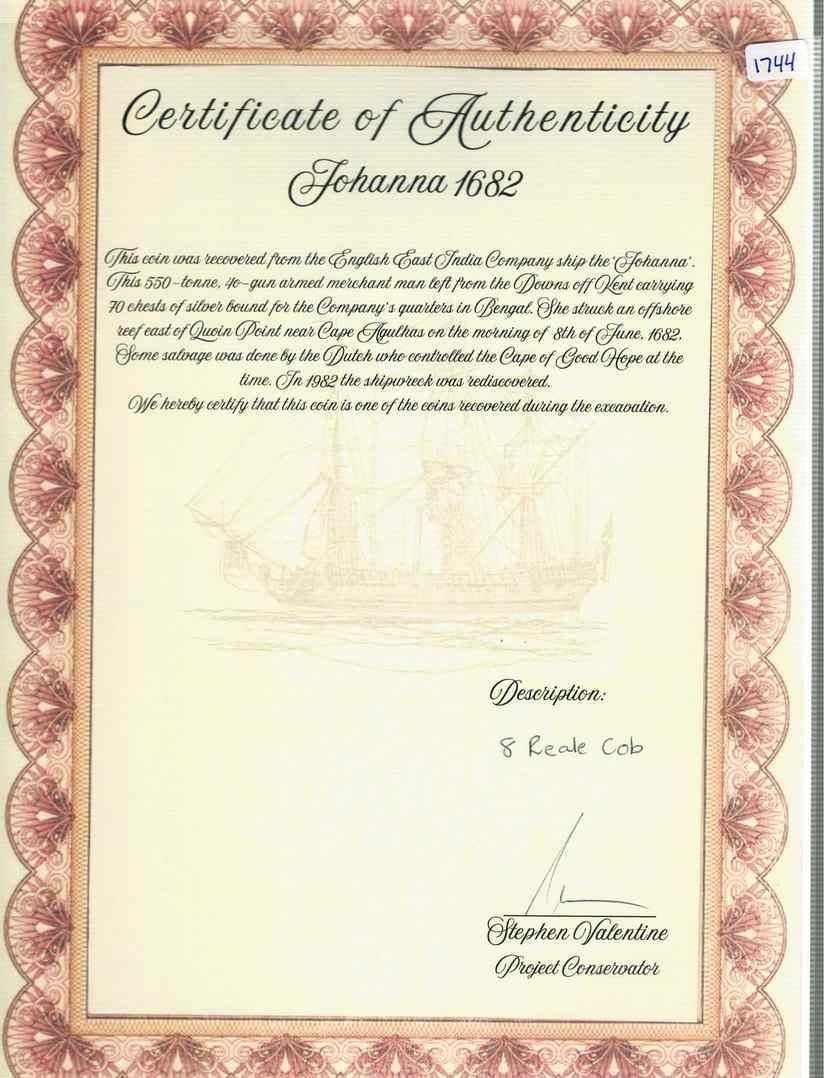 1744
Certificate of Authenticity
Johanna 1682
This coin was recovered from the English East India Company ship the 'Johanna'.
This 550-tonne, 40-gun armed merchant man left from the Downs off Kent carrying
70 chests of silver bound for the Company's quarters in Bengal. She struck an offshore
reef east of Quoin Point near Cape Agulhas on the morning of 8th of June, 1682.
Some salvage was done by the Dutch who controlled the Cape of Good Hope at the
time. In 1982 the shipwreck was rediscovered.
We hereby certify that this coin is one of the coins recovered during the excavation.
Description:
8 Reale Cob
Stephen Valentine
Project Conservator